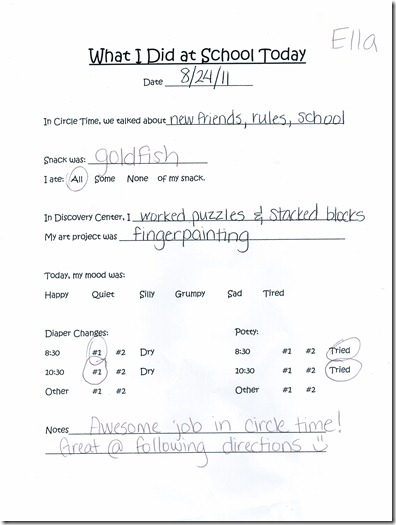 Ella
What I Did at School Today
Date 8/24/11
In Circle Time, we talked about new friends, rules, school
Snack was: goldfish
I ate: All Some None of my snack.
In Discovery Center, I worked puzzles & stacked blocks
My art project was fingerpainting
Today, my mood was:
Happy Quiet Silly Grumpy Sad Tired
Diaper Changes: Potty:
8:30 #1 #2 Dry 8:30 #1 #2 Tried
10:30 #1 #2 Dry 10:30 #1 #2 Tried
Other #1 #2 Other #1 #2
Notes Awesome job in circle time!
Great @ following directions